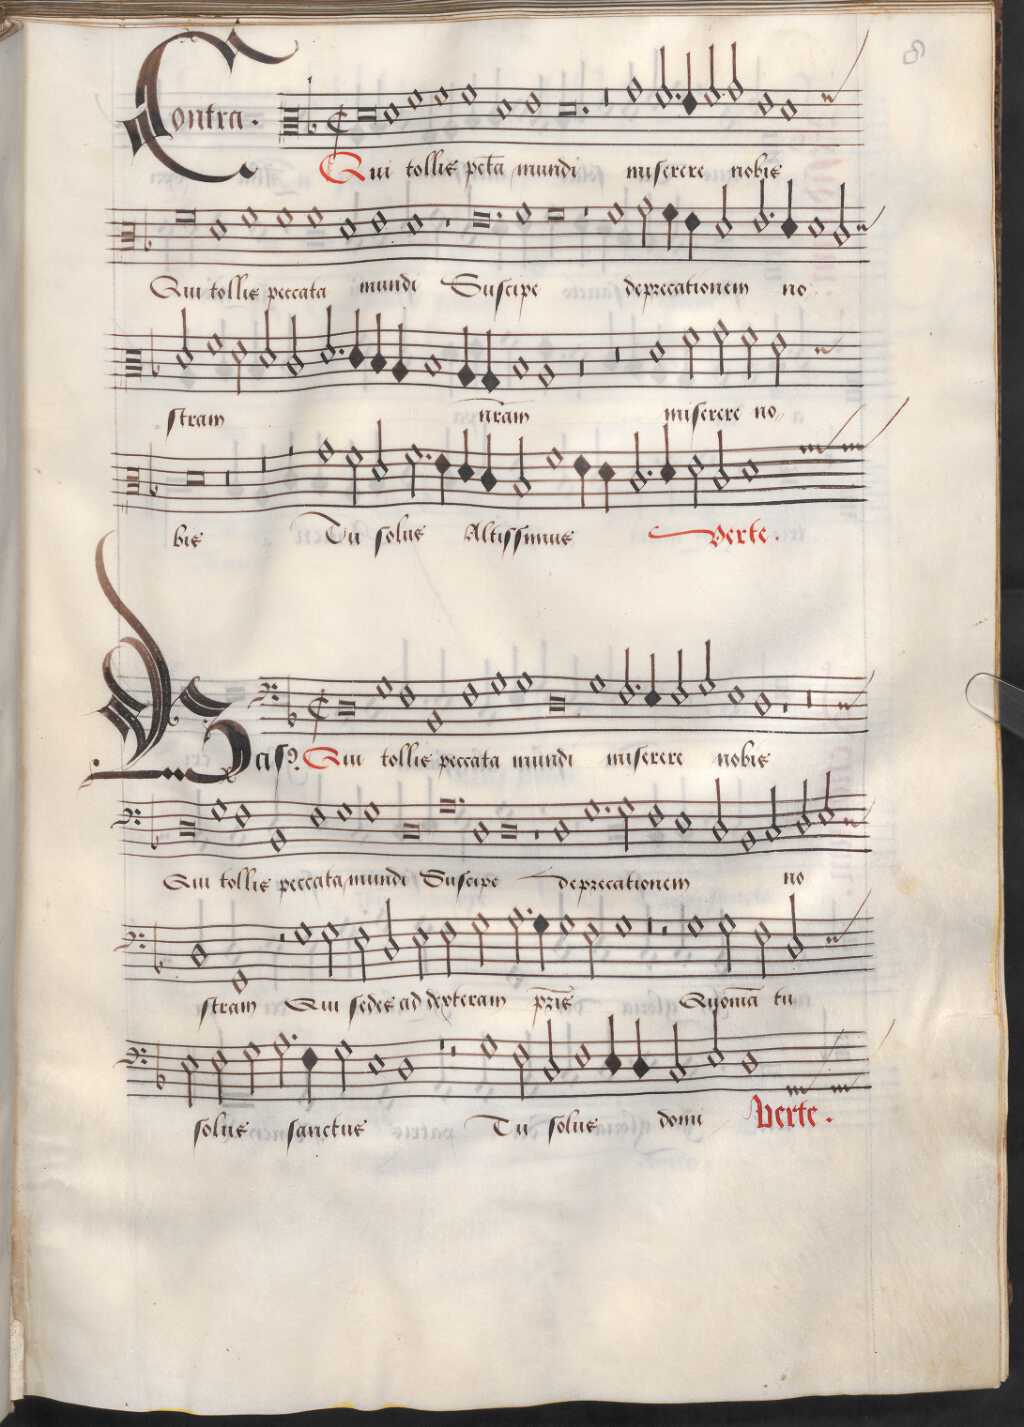 8
Contra.
Qui tollis pctā mundi miserere nobis
Qui tollis peccata mundi Suscipe deprecationem no
stram nrām miserere no
bis Tu solus Altissimus Verte.
Bass9. Qui tollis peccata mundi miserere nobis
Qui tollis peccata mundi Suscipe deprecationem no
stram Qui sedes ad dexteram pr̄is Quoniā tu
solus sanctus Tu solus domi Verte.